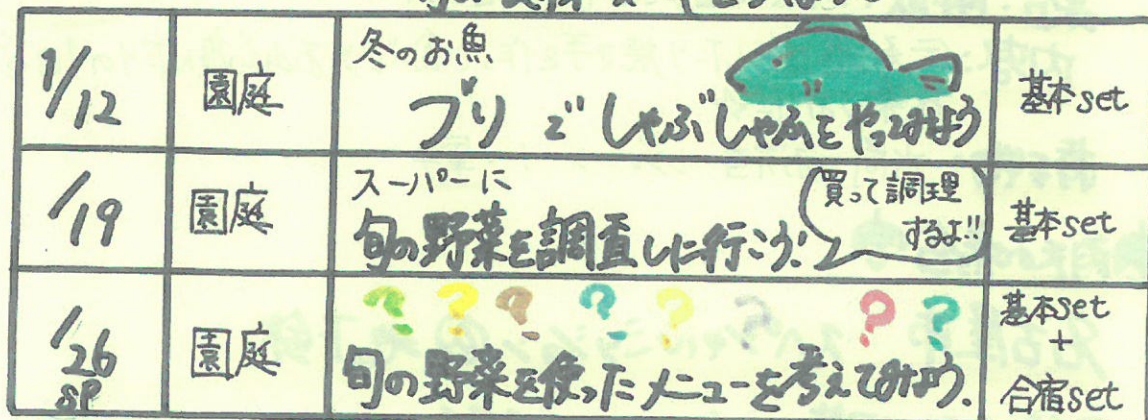 1/12
園庭
冬のお魚
ブリでしゃぶしゃぶをやってみよう
基本set
/19
園庭
スーパーに
旬の野菜を調査しに行こう!
買って調理
するよ!!
基本set
/26
SP
園庭
? ? ? ? ? ? ? ?
旬の野菜を使ったメニューを考えてみよう.
基本set
+
合宿set